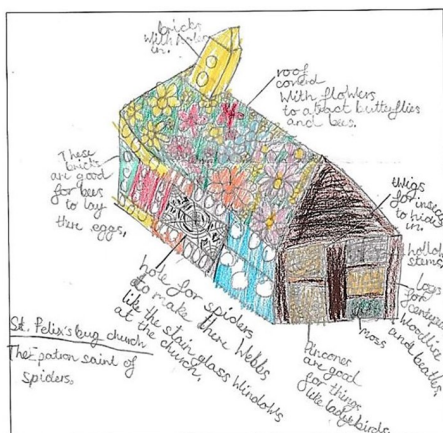 bricks
with holes
in.
roof
coverd
With flowers
to atract butterflies
and bees.
These
bricks
are good
for bees
to lay
there eggs.
twigs
for insects
to hide
in.
hollow
stems
Logs
for
centepedes
Woodlice
and beatles
moss
Pincones
are good
for things
like lady birds.
hole for spiders
to make there Webbs
like the stain glass windows
at the church.
St. Felix's bug church
The patron saint of
spiders.